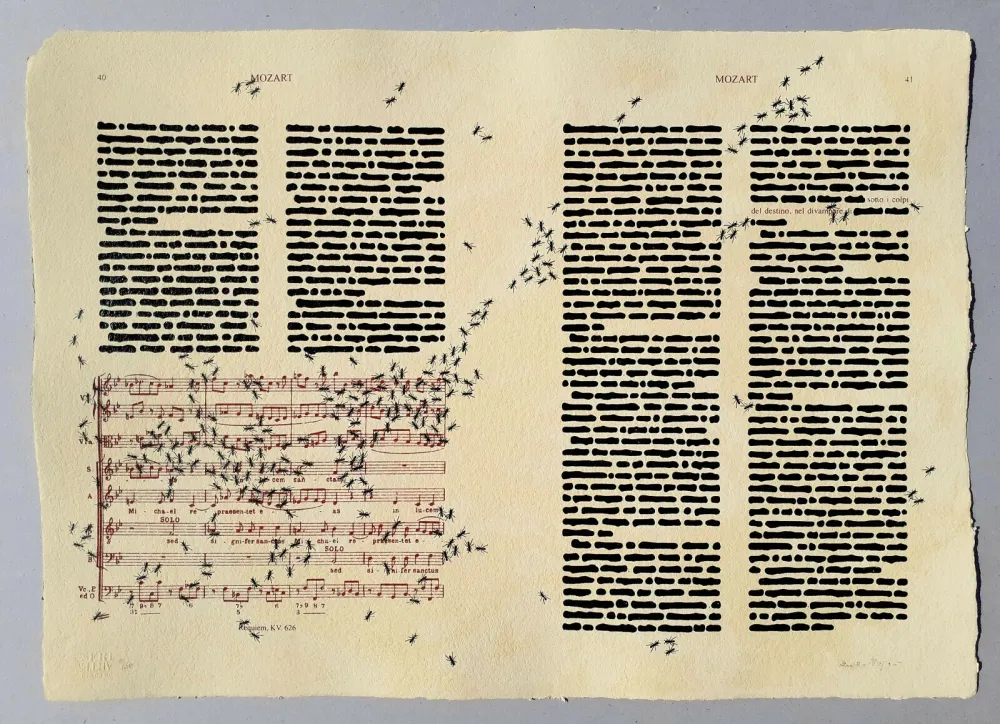 40
MOZART
MOZART
41
sotto i colpi
del destino, nel divampare
S.
cem san cta
A
Mi - cha-el re praesen-tet e as in lucem
SOLO
sed si gni-fer sanctus Mi cha-el re praesen-tet e
SOLO
B.
sed si gni fer sanctus
ed O
Requiem, KV. 626